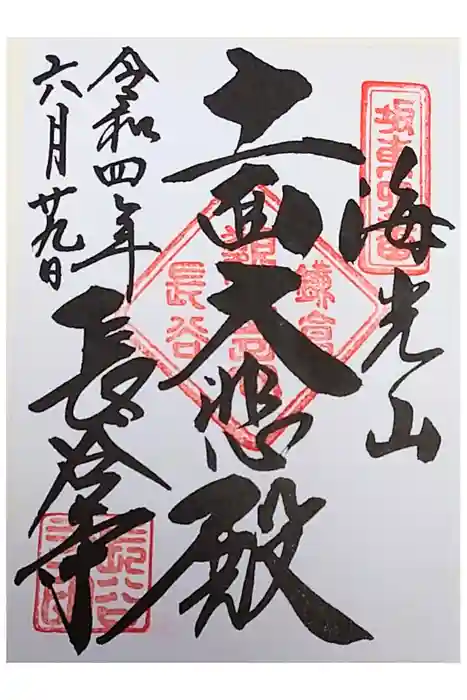 坂東第四番
海光山
十一面大悲殿
鎌倉
長谷
令和四年
六月廿九日
長谷寺